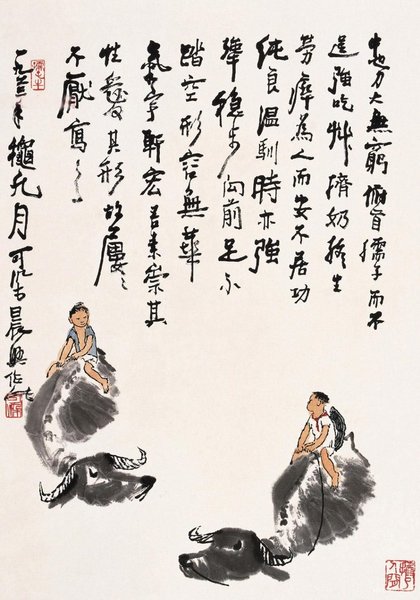 牛也力大無窮俯首孺子而不
逞強吃草擠奶終生
勞瘁為人而安不居功
純良温馴時亦強
犟穩步向前足不
踏空形容無華
氣宇軒宏吾素崇其
性愛其形故屢々
不厭寫之
一九年龝九月可染晨興作